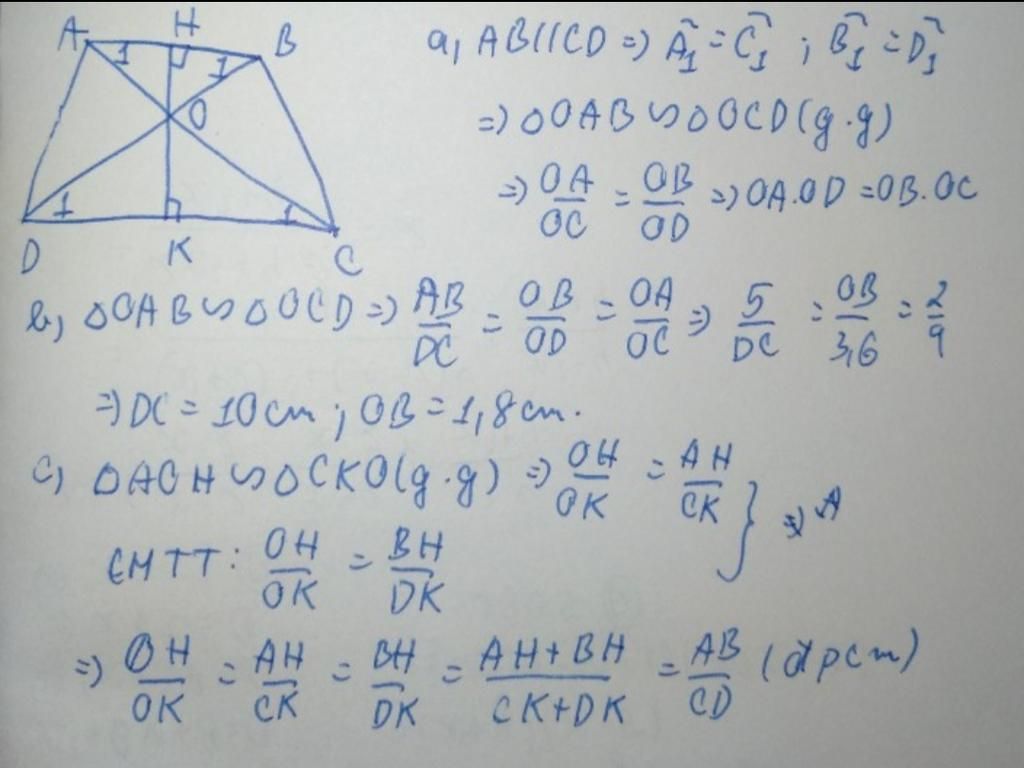 A H B
1 1
O
1 1
D K C
a, AB//CD => Â₁ = Ĉ₁ ; B̂₁ = D̂₁
=> △OAB ∽ △OCD (g.g)
=> OA/OC = OB/OD => OA.OD = OB.OC
b, △OAB ∽ △OCD => AB/DC = OB/OD = OA/OC => 5/DC = OB/3,6 = 2/4
=> DC = 10cm ; OB = 1,8cm.
c, △AOH ∽ △CKO (g.g) => OH/OK = AH/CK } => A
CMTT: OH/OK = BH/DK
=> OH/OK = AH/CK = BH/DK = AH+BH/CK+DK = AB/CD (đpcm)